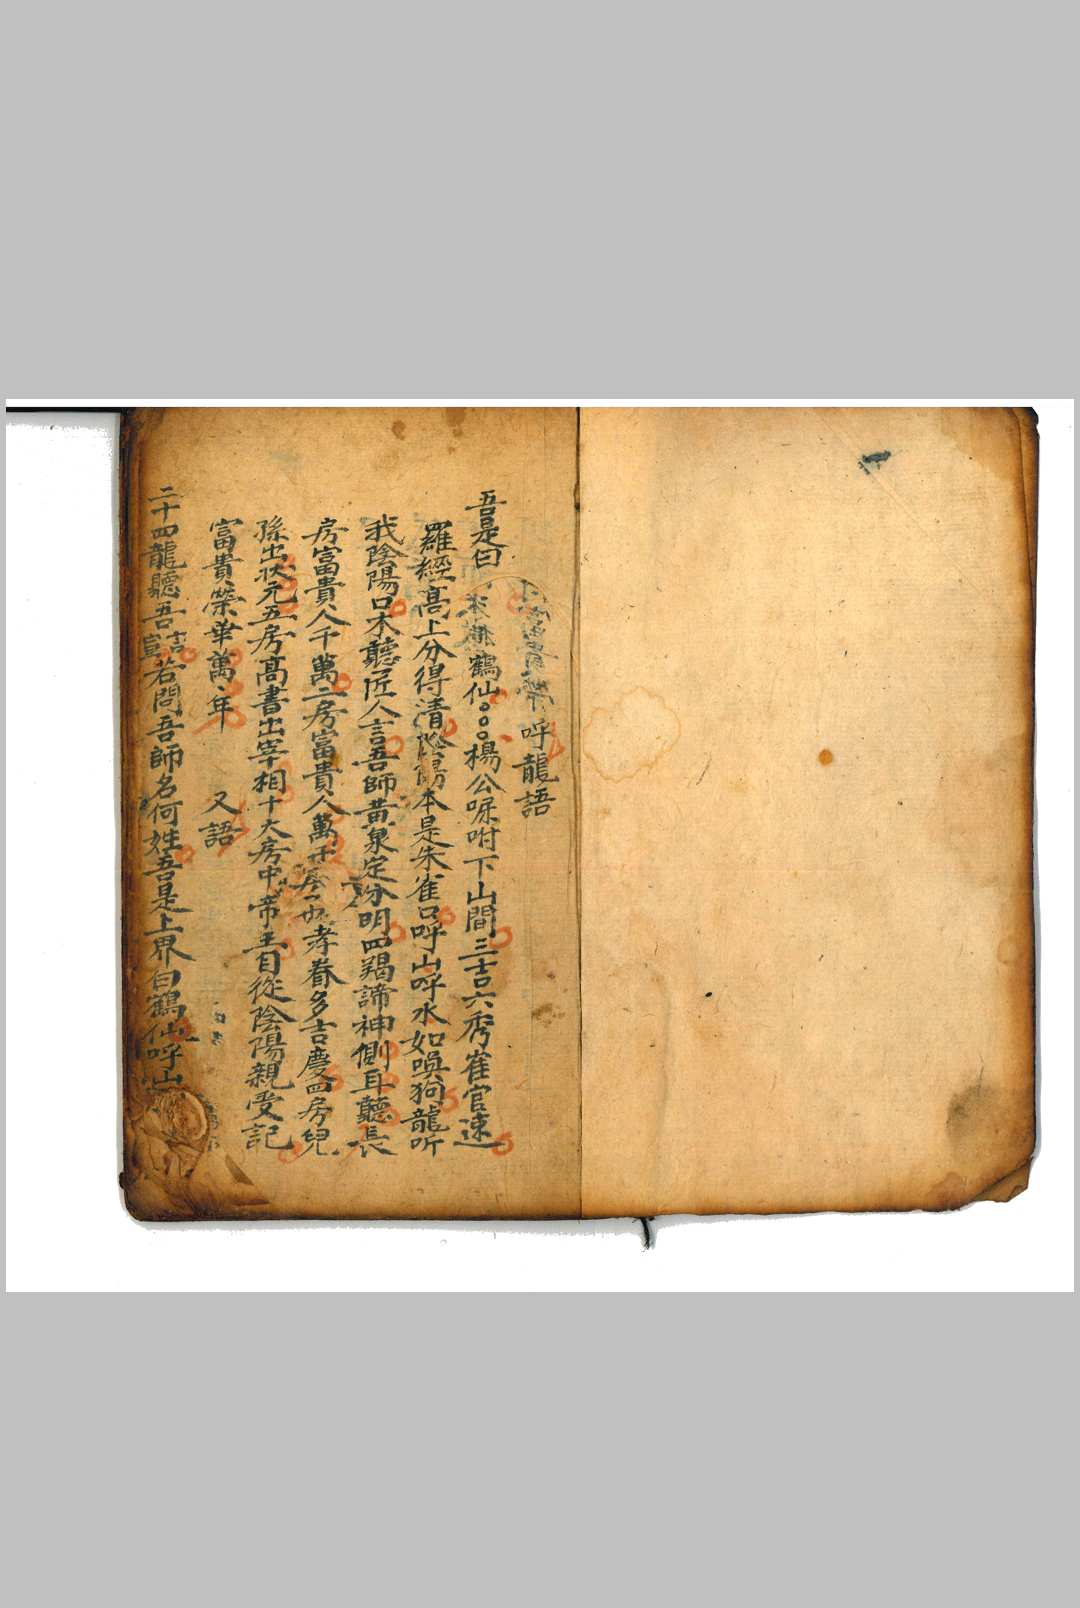 呼龍語
吾是曰 鶴仙 楊公咊咐下山間三吉六秀崔官速
羅經高上分得清陰陽本是朱雀口呼山呼水如喚狗龍听
我陰陽口木聽匠人言吾師黃泉定分明四羯諦神側耳聽長
房富貴人千萬二房富貴人萬千 孝眷多吉慶四房兒
孫出状元五房高書出宰相十大房中帝王自從陰陽親受記
富貴榮華萬年 又語
二十四龍聽吾言若問吾師名何姓吾是上界白鶴仙呼山